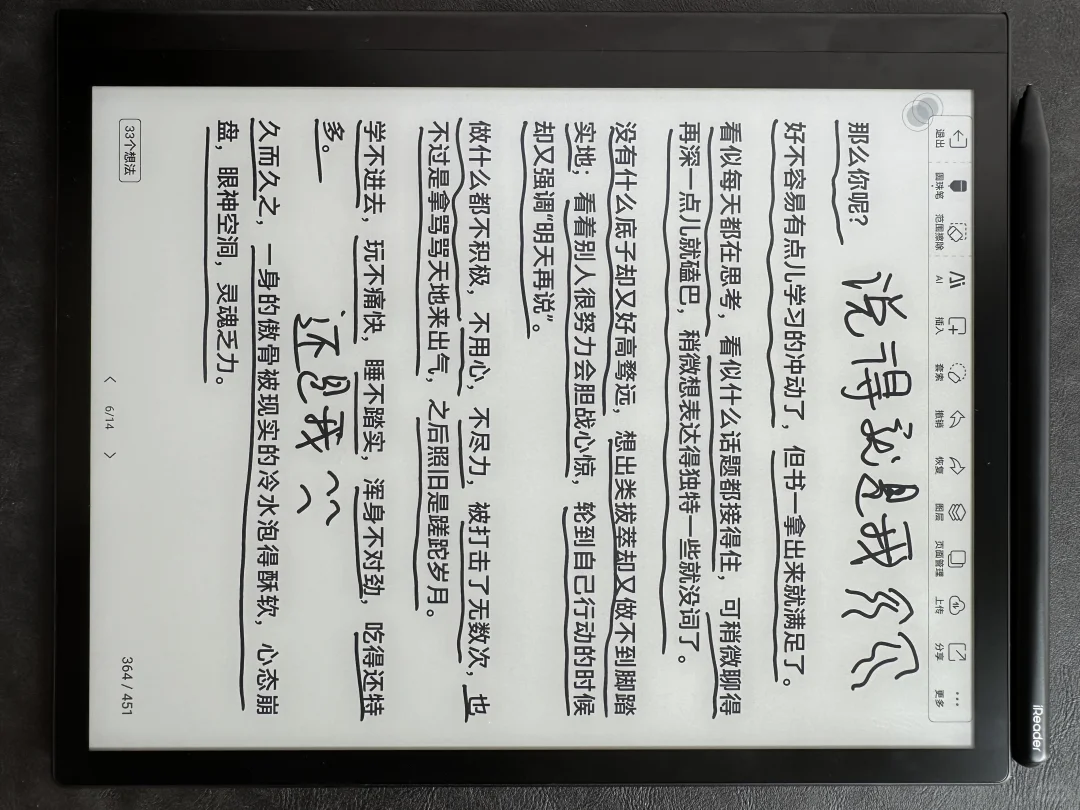 退出
圆珠笔
范围擦除
AI
插入
套索
撤销
恢复
图层
页面管理
上传
分享
更多
那么你呢?
说得就是我
好不容易有点儿学习的冲动了，但书一拿出来就满足了。
看似每天都在思考，看似什么话题都接得住，可稍微聊得
再深一点儿就磕巴，稍微想表达得独特一些就没词了。
没有什么底子却又好高骛远，想出类拔萃却又做不到脚踏
实地；看着别人很努力会胆战心惊，轮到自己行动的时候
却又强调“明天再说”。
做什么都不积极，不用心，不尽力，被打击了无数次，也
不过是拿骂骂天地来出气，之后照旧是蹉跎岁月。
学不进去，玩不痛快，睡不踏实，浑身不对劲，吃得还特
多。
还是我
久而久之，一身的傲骨被现实的冷水泡得酥软，心态崩
盘，眼神空洞，灵魂乏力。
33个想法
< 6/14 >
364 / 451
iReader